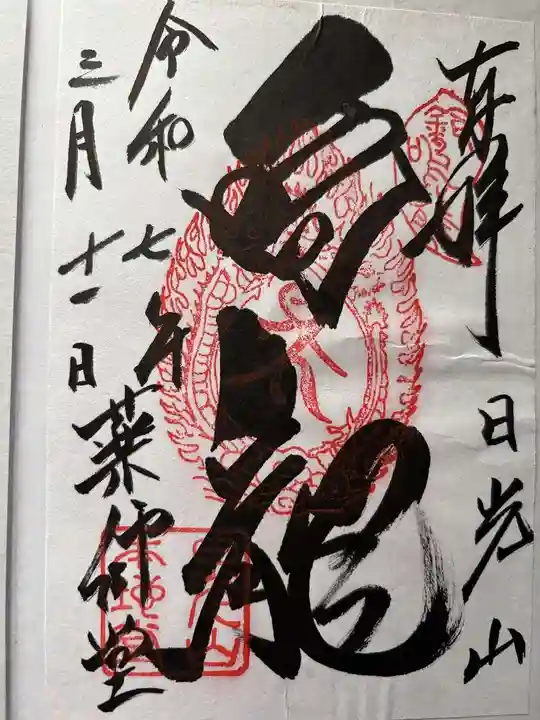 奉拝
日光山
鳴龍
薬師堂
令和七年
三月十一日